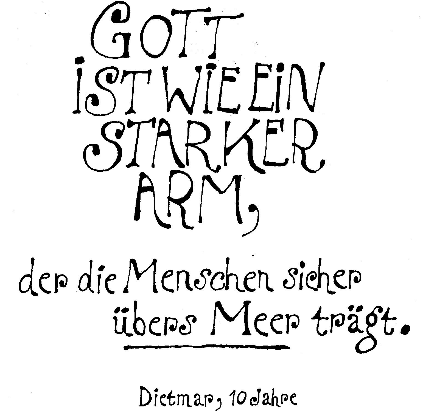 GOTT
iST WiE EiN
STARKER
ARM,
der die Menschen sicher
übers Meer trägt.
Dietmar, 10 Jahre